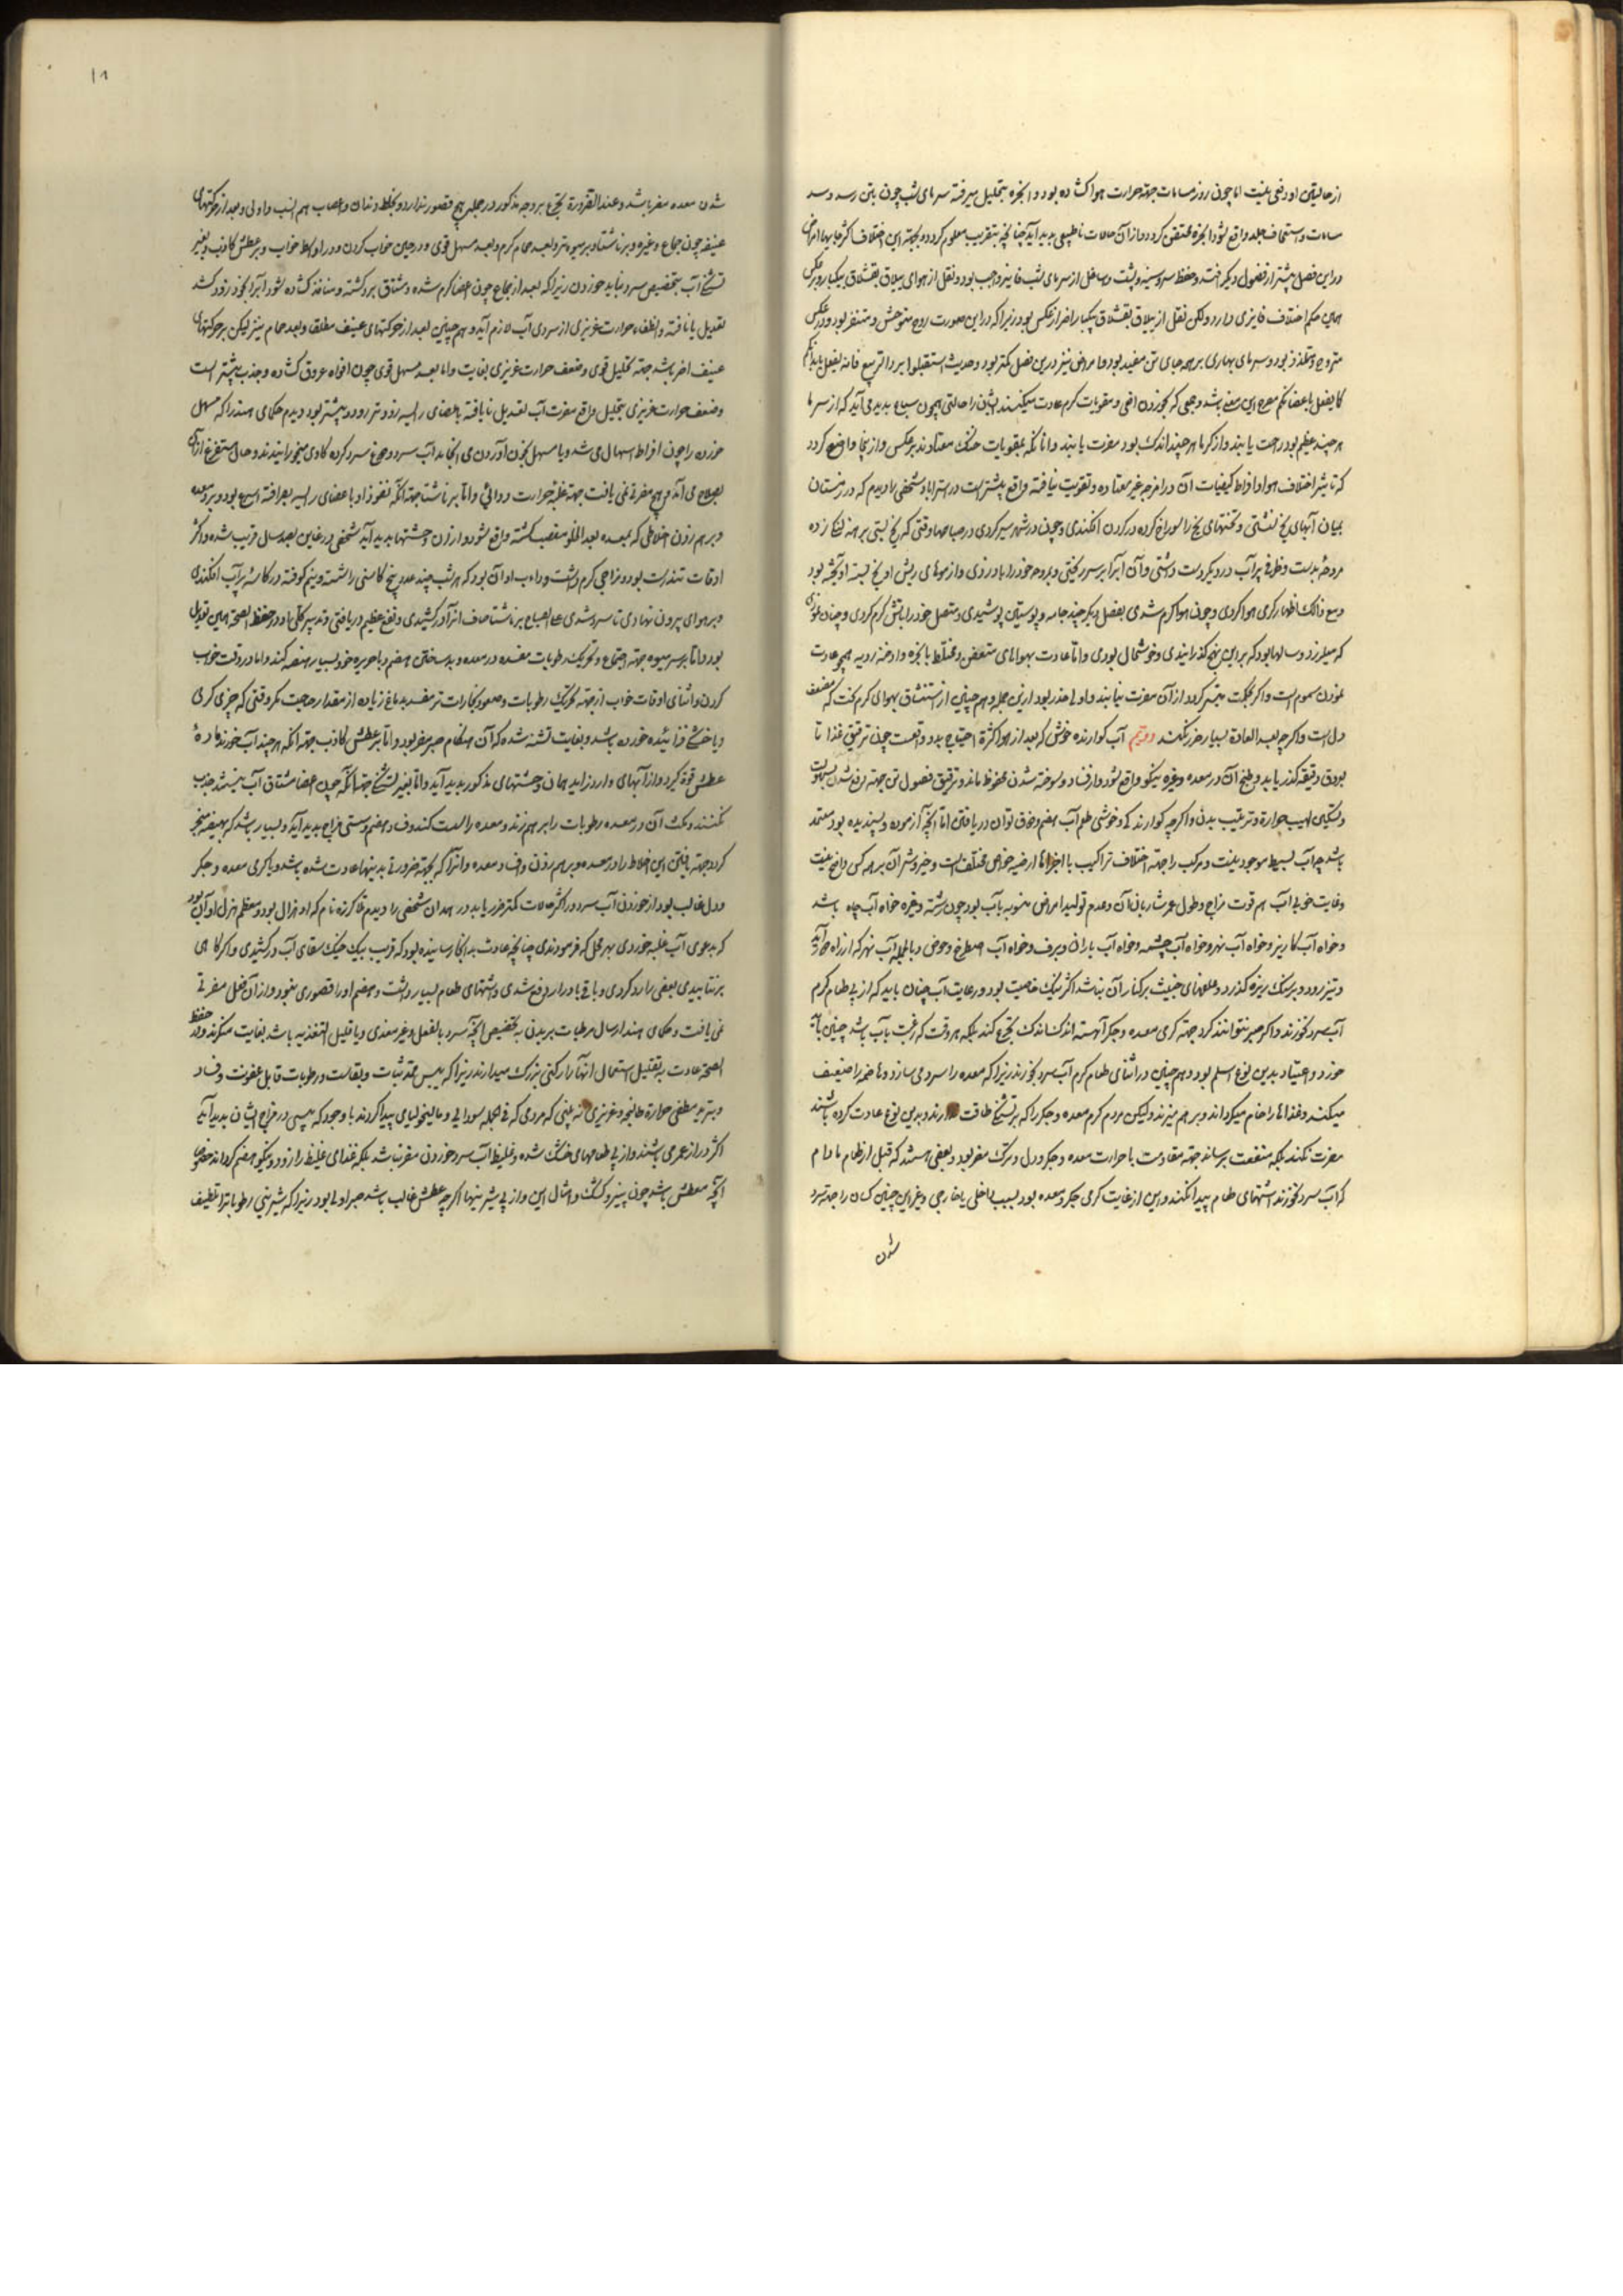 از حالیتین او دفعی نیست اما چون روز مسامات جهة حرارت هوا کشاده بود و ابخره بتحلیل میرفته سرمای شب چون بتن رسد و سد
مسامات و استحصاف جلد واقع شود ابخره محتقن کردد و از آن حالات ناطبیعی پدید آید چنانچه بتقریب معلوم کردد و بجهة این اختلاف اکثر جایها امراض
در این فصل بیشتر از فصول دیکر افتد و حفظ سر و سینه و پشت و ساعد از سرمای شب واجب بود و نقل از هوای ییلاق بقشلاق بیکبار و برعکس
همین حکم اختلاف دارد ولکن نقل از ییلاق بقشلاق بیکبار اضر از عکس بود زیرا که در این صورت روح متوحش و متنفر بود و در عکس
متروح و متلذذ بود و سرمای بهاری بر همه جای تن مفید بود و امراض نیز درین فصل کمتر بود و حدیث استقبلوا برد الربیع فانه یفعل بابدانکم
کما یفعل باعضائکم مصرح این معنی باشد و جمعی که بخوردن افیون و مقویات کرم عادت میکنند ایشان را حالتی همچون سباع پدید می‌آید که از سرما
هر چند عظیم بود راحت یابند و از کرما هر چند اندک بود مضرت یابند و آنانکه بمقویات خنک معتادند برعکس و از اینجا واضح کردد
که تاثیر اختلاف هوا و افراط کیفیات آن در امزجه غیر معتاده و تقویت نیافته واقع بیشتر است در استراباد شخصی را دیدم که در زمستان
بمیان آبهای یخ نشستی و تختهای یخ را سوراخ کرده در کردن افکندی و چون در شهر سیر کردی در صباحها وقتی که یخ بستی برهنه لنک زده
مروحه بدست و ظرفی پر آب در دیکر دست داشتی و آن آب را بر سر ریختی و بمروحه خود را باد زدی و از موهای ریش او یخ بسته آویخته بود
و مع ذالک اظهار کرمی هوا کردی و چون هوا کرم شدی بفصل دیکر چند جامه و پوستین پوشیدی و متصل خود را باتش کرم کردی و چنان نمودی
که میلرزد و سالها بود که بر این نهج کذرانیدی و خوشحال بودی و اما عادت بهواهای متعفن و مختلط بابخره و ادخنه ردیه همچو عادت
بخوردن سموم است و اکر بحکمت میسر کردد از آن مضرت نیابند و اولی حذر بود ازین جمله و همچنین از استنشاق بهوای کرم تفت که مضعف
دل است و اکر چه بعد العادة بسیار ضرر نکند دویم آب کوارنده خوش که بعد از هوا کثرة احتیاج بدو واقعست چون ترقیق غذا تا
بعروق دقیقه کذر یابد و طبخ آن در معده و غیره نیکو واقع شود و از فساد و سوخته شدن محفوظ ماند و ترقیق فضول تن جهة دفع شدن بسهولت
و تسکین لهیب حرارة و ترطیب بدن و اکر چه کوارندکی و خوشی طعم آب بهضم و ذوق توان دریافتن اما آنچه آزموده و پسندیده بود معتمد
باشد چه آب بسیط موجود نیست و مرکب را جهة اختلاف تراکیب با اجزاها ارضیه خواص مختلف است و خیر و شر آن بر همه کس واضح نیست
و غایت خوبی آب هم قوت مزاج و طول عمر شاربان آن و عدم تولید امراض منسوبه بآب بود چون رشته و غیره خواه آب چاه باشد
و خواه آب کاریز و خواه آب نهر و خواه آب چشمه و خواه آب باران و برف و خواه آب اصطرخ و حوض و بالجمله آب نهر که از راه دور آید
و تیز رود و بر سنک ریزه کذرد و علفهای خبیث بر کنار آن نباشد اکثر نیک خاصیت بود و رعایت آب چنان باید که از پی طعام کرم
آب سرد نخورند و اکر صبر نتوانند کرد جهة کرمی معده و جکر آهسته اندک اندک تجرع کند بلکه هر وقت که رغبت بآب باشد چنین باید
خورد و اعتیاد بدین نوع اسلم بود و همچنین در اثنای طعام کرم آب سرد نخورند زیرا که معده را سرد می‌سازد و هاضمه را ضعیف
میکند و غذاها را خام میکرداند و بر هم میزند ولیکن مردم کرم معده و جکر را که بر تشنکی طاقت ندارند و بدین نوع عادت کرده باشند
مضرت نکند بلکه منفعت برساند جهة مقاومت با حرارت معده و جکر و دل و ترک مضر بود و بعضی هستند که قبل از طعام مادام
که آب سرد نخورند اشتهای طعام پیدا نکنند و این از غایت کرمی جکر و معده بود بسبب داخلی یا خارجی و غیر این چنین کسان را جهة سرد
شدن
۱۸
شدن معده مضر باشد و عند الضرورة تجرع بر وجه مذکور در جمله هیچ قصور ندارد و بحفظ دندان و اعصاب هم انسب و اولی و بعد از حرکتهای
عنیفه چون جماع و غیره و بر ناشتا و بر میوه تر و بعد حمام کرم و بعد مسهل قوی و در حین خواب کردن و در اواسط خواب و بر عطش کاذب و بغیر
تشنکی آب بتخصیص سرد نباید خوردن زیرا که بعد از جماع چون اعضا کرم شده و مشتاق برد کشته و منافذ کشاده شود آب را بخود زود کشد
تعدیل نایافته و انطفاء حرارت غریزی از سردی آب لازم آید و همچنین بعد از حرکتهای عنیف مطلقا و بعد حمام نیز لیکن بر حرکتهای
عنیف اضر باشد جهة تحلیل قوی و ضعف حرارت غریزی بغایت و اما بعد مسهل قوی چون افواه عروق کشاده و جذب بیشتر است
و ضعف حرارت غریزی بتحلیل واقع مضرت آب تعدیل نایافته باعضای رئیسه زودتر رود و بیشتر بود و دیدم حکمای هند را که مسهل
خورده را چون افراط اسهال می شد و یا مسهل بخون آوردن می انجامد آب سرد و دوغ سرد کرده کاوی میخورانیدند و حال مستفرغ از آن
بصلاح می آمد و هیچ مضرتی نمی یافت جهة غلبه حرارت دوائی و اما بر ناشتا جهة آنکه نفوذ او باعضای رئیسه بصرافة اسرع بود و بر معده
و بر هم زدن اخلاطی که بمعده بعد الخلو منصب کشته واقع شود و از آن وحشتها پدید آید شخصی در غاین بصد سال قریب شده و اکثر
اوقات تندرست بود و مزاجی کرم داشت و داب او آن بود که هر شب چند عدد بیخ کاسنی را شسته و نیم کوفته در کاسه پر آب افکندی
و بر هوای بیرون نهادی تا سرد شدی علی الصباح بر ناشتا صاف آن را درکشیدی و نفع عظیم دریافتی و تدبیر کلی او در حفظ الصحة همین تعدیل
بود و اما بر سر میوه جهة اجتماع و تحریک رطوبات مفسده در معده و بد ساختن هضم و با حریره خود بسیار هیضه کند و اما در وقت خواب
کردن و اثنای اوقات خواب از جهة تحریک رطوبات و صعود بخارات تر مفسد بدماغ زیاده از مقدار حاجت مکر وقتی که چیزی کرمی
و یا خشکی فزائیده خورده باشد و بغایت تشنه شده که آن هنکام صبر مضر بود و اما بر عطش کاذب جهة آنکه هر چند آب خورند ماده
عطش قوة کیرد و از آبهای وارد زاید همان وحشتهای مذکور پدید آید و اما بغیر تشنکی جهة آنکه چون اعضا مشتاق آب نیستند جذب
نکنند و مکث آن در معده رطوبات را بر هم زند و معده را سست کند و فساد هضم و سستی مزاج پدید آید و بسیار باشد که بهیضه منجر
کردد جهة یافتن این اخلاط را در معده و بر هم زدن و فساد معده و آنرا که بجهة ضرورتی بدینها عادت شده باشد و یا کرمی معده و جکر
و دل غالب بود از خوردن آب سرد در اکثر حالات کمتر ضرر یابد در همدان شخصی را دیدم نام که او هزال بود و معظم هزل او آن بود
که بدعوی آب غلبه خوردی بهر محل که فرمودندی چنانچه عادت به انجا رسانیده بود که قریب بیک خیک سقای آب درکشیدی و اکر کاهی
بر نتابیدی بعضی را رد کردی و باقی بادرار دفع شدی و اشتهای طعام بسیار داشت و هضم او را قصوری نبود و از آن فعل مضرتی
نمی یافت و حکمای هند ارسال مرطبات ببدن به تخصیص آنچه سرد بالفعل و غیر مغذی و یا قلیل التغذیه باشد بغایت منکرند و در حفظ
الصحة عادت به تقلیل استعمال آنها را رکنی بزرک میدارند زیرا که یبس ممد ثبات و بقاست و رطوبات قابل عفونت و فساد
و تبرید مطفی حرارة طابخه و غریزی نه بینی که مردمی که فی الجمله سودایی و مالیخولیای پیدا کردند با وجود که یبسی در مزاج ایشان پدید آید
اکثر دراز عمر می باشند و از پی طعامهای خشک شده و غلیظ آب سرد خوردن مضر نباشد بلکه غذای غلیظ را زود و نیکو هضم کرداند خصوصا
آنچه معطش باشد چون پنیر و کشک و امثال این و از پی شیرینیها اکر چه عطش غالب باشد صبر اولی بود زیرا که شیرینی رطوبات را تلطیف